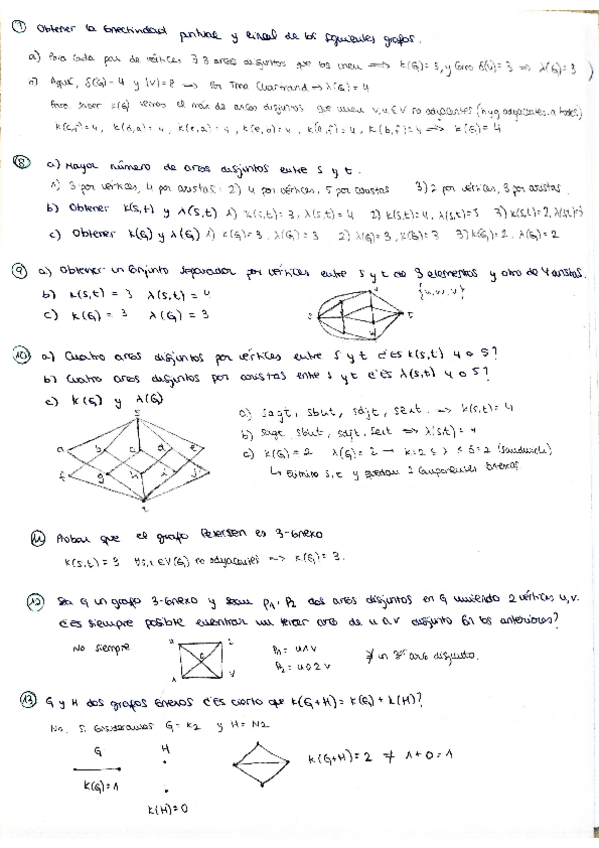 7 Obtener la conectividad puntual y lineal de los siguientes grafos.
a) Para cada par de vértices ∃ 3 arcos disjuntos que los unen ⟹ K(G)=3, y como δ(G)=3 ⟹ λ(G)=3
Aquí, δ(G)=4 y |V|=8 → Por Tma Chartrand ⟹ λ(G)=4
Para hacer K(G) vemos el más de arcos disjuntos que unen v,u ∈ V no adyacentes
K(G)=4
8 a) Mayor número de arcos disjuntos entre s y t.
1) 3 por vértices, 4 por aristas. 2) 4 por vértices, 5 por aristas 3) 2 por vértices, 3 por aristas.
b) Obtener K(s,t) y λ(s,t) 1) K(s,t)=3, λ(s,t)=4 2) K(s,t)=4, λ(s,t)=5 3) K(s,t)=2, λ(s,t)=3
c) Obtener K(G) y λ(G) 1) K(G)=3, λ(G)=3 2) λ(G)=3, K(G)=3 3) K(G)=2, λ(G)=2
9 a) Obtener un conjunto separador por vértices entre s y t de 3 elementos y otro de 4 aristas.
b) K(s,t) = 3 λ(s,t) = 4
c) K(G) = 3 λ(G) = 3
10 a) Cuatro arcos disjuntos por vértices entre s y t ¿es K(s,t) 4 o 5?
b) Cuatro arcos disjuntos por aristas entre s y t ¿es λ(s,t) 4 o 5?
c) K(G) y λ(G)
a) sagt, sbut, sdjt, seit ⟹ K(s,t)=4
b) sagt, sbut, sdjt, seit ⟹ λ(s,t)=4
c) K(G)=2 λ(G)=2
↳ Elimino s,t y quedan 2 componentes conexas
s
a b c d e
f g h i j
t
11 Probar que el grafo Petersen es 3-conexo
K(s,t)=3 ∀s,t ∈ V(G) no adyacentes ⟹ K(G)=3.
12 Sea G un grafo 3-conexo y sean P₁, P₂ dos arcos disjuntos en G uniendo 2 vértices u,v.
¿Es siempre posible encontrar un tercer arco de u a v disjunto con los anteriores?
No siempre
u 2
c
1 v
P₁ = u1v
P₂ = u02v
∄ un 3er arco disjunto.
13 G y H dos grafos conexos ¿es cierto que K(G+H) = K(G)+K(H)?
No. Si consideramos G=K2 y H=N2
G H
K(G)=1
K(H)=0
K(G+H)=2 ≠ 1+0=1